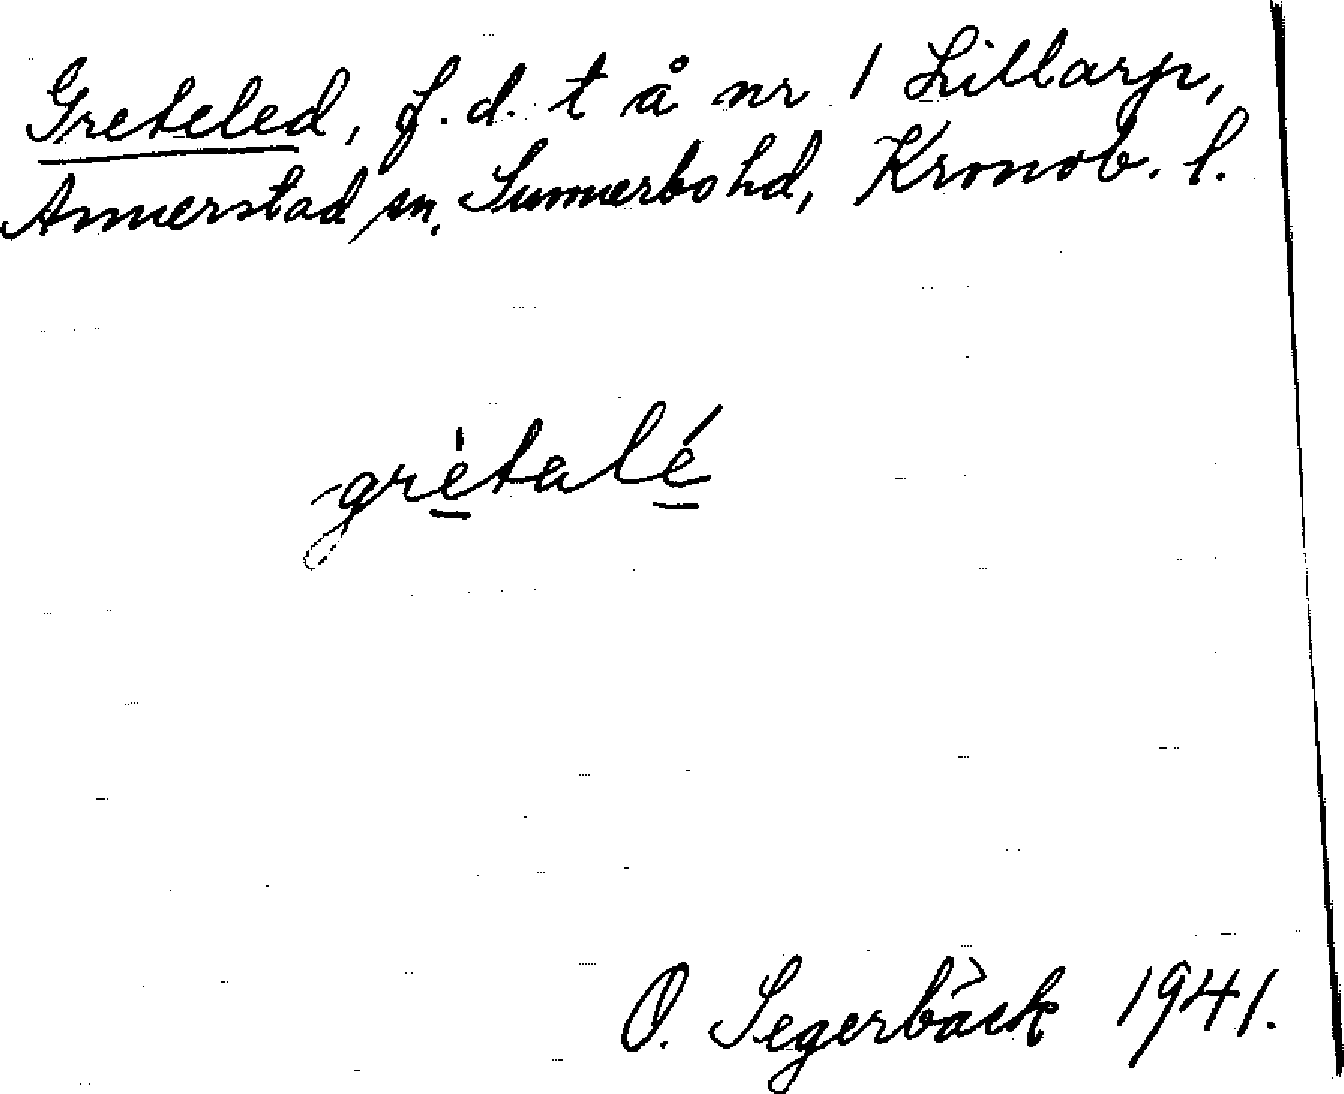 Greteled, f.d. t å nr 1 Lillarp,
Annerstad sn, Sunnerbo hd, Kronob. l.
grètalé
O. Segerbäck 1941.